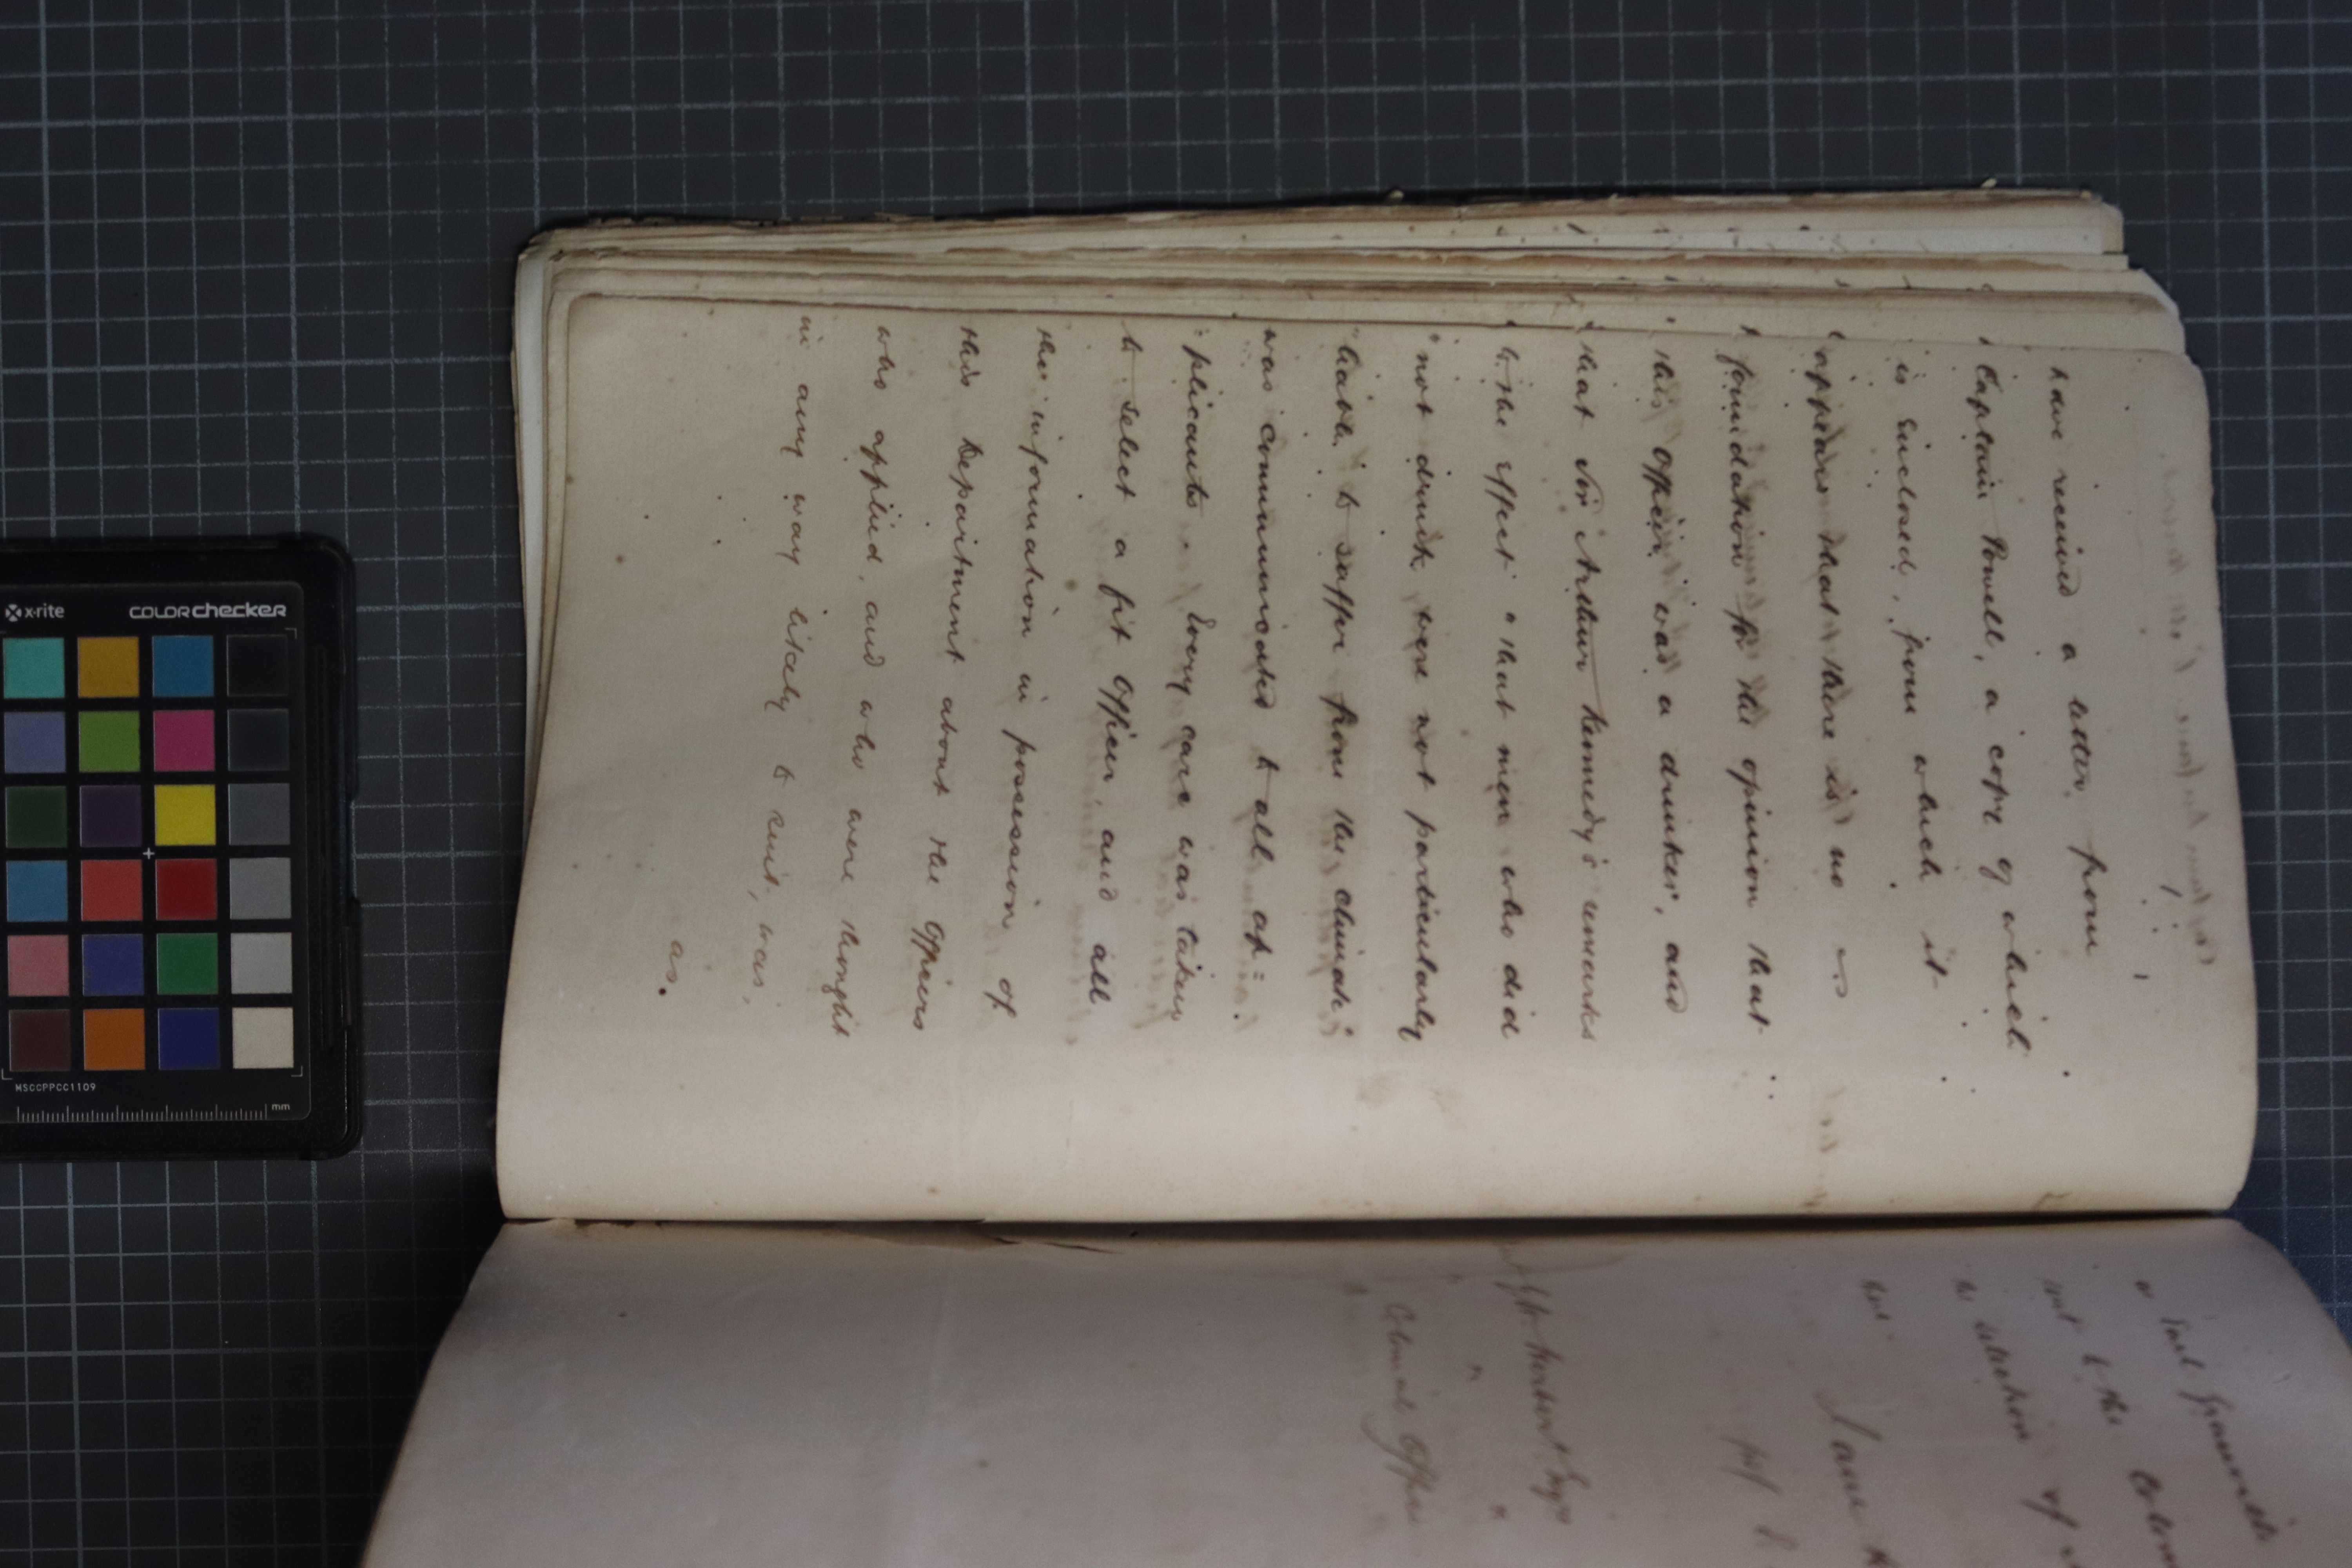 have received a letter from
Captain Powell, a copy of which
is enclosed, from which it
appears that there is no
foundation for the opinion that
this officer was a drinker, and
that Sir Arthur Kennedy's remarks
to the effect "that men who did
"not drink were not particularly
"liable to suffer from the climate"
was communicated to all ap=
plicants. Every care was taken
to select a fit Officer, and all
the information in possession of
this Department about the Officers
who applied, and who were thought
in any way likely to suit, was,
as.
Earl Granville
to the
selection of
I am
Herbert Esqre
Colonial Office
x-rite
COLORchecker
MSCCPPCC1109
mm